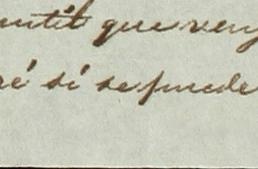 util que ven
ré si se puede